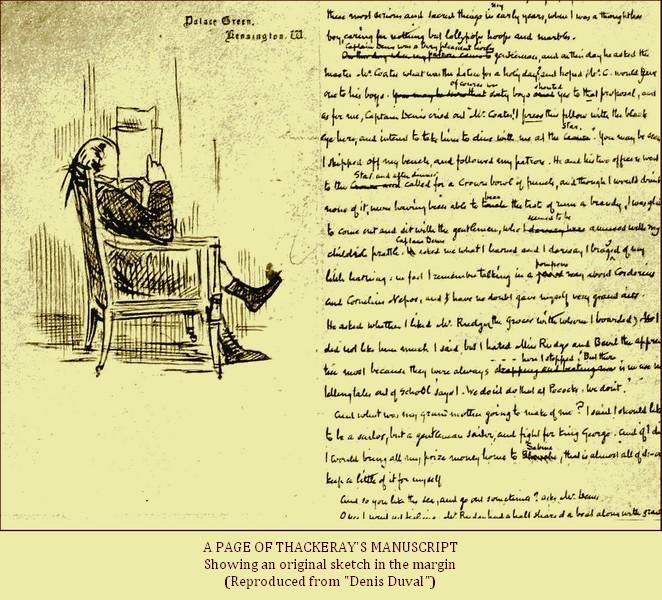 Palace Green,
Kensington. W.
these most serious and sacred things in my early years, when I was a thoughtless
boy, caring for nothing but lollypops hoops and marbles.
Captain Denis was a very pleasant
gentleman, and on this day he asked the
master Mr. Coates what was the Latin for a holyday? and hoped Mr. C. would give
one to his boys. of course we sixty boys shouted yes to that proposal, and
as for me, Captain Denis cried out "Mr. Coates! I press this fellow with the black
eye here, and intend to take him to dine with me at the Star. You may be sure
I skipped off my bench, and followed my patron. He and his two officers went
to the Star, and after dinner called for a Crown bowl of punch, and though I would drink
none of it, never having been able to bear the taste of rum or brandy, I was glad
to come out and sit with the gentlemen, who seemed to be amused with my
childish prattle. Captain Denis asked me what I learned and I daresay I bragged of my
little learning. in fact I remember talking in a pompous way about Corderius
and Cornelius Nepos, and I have no doubt gave myself very grand airs.
He asked whether I liked Mr. Rudge, the Grocer with whom I boarded? I
did not like him much I said, but I hated Miss Rudge and Bevil the appren
tice most because they were always - - - here I stopped. But there is no use in
telling tales out of School says I. We don't do that at Pococks. we don't."
And what was my grandmother going to make of me? I said I should like
to be a sailor, but a gentleman sailor, and fight for King George. And if I did
I would bring all my prize money home to Agnes, that is almost all of it
keep a little of it for myself
And so you like the sea, and go out sometimes? asks Mr. Denis
Mr. Rudge had a half share of a boat along with
A PAGE OF THACKERAY'S MANUSCRIPT
Showing an original sketch in the margin
(Reproduced from "Denis Duval")